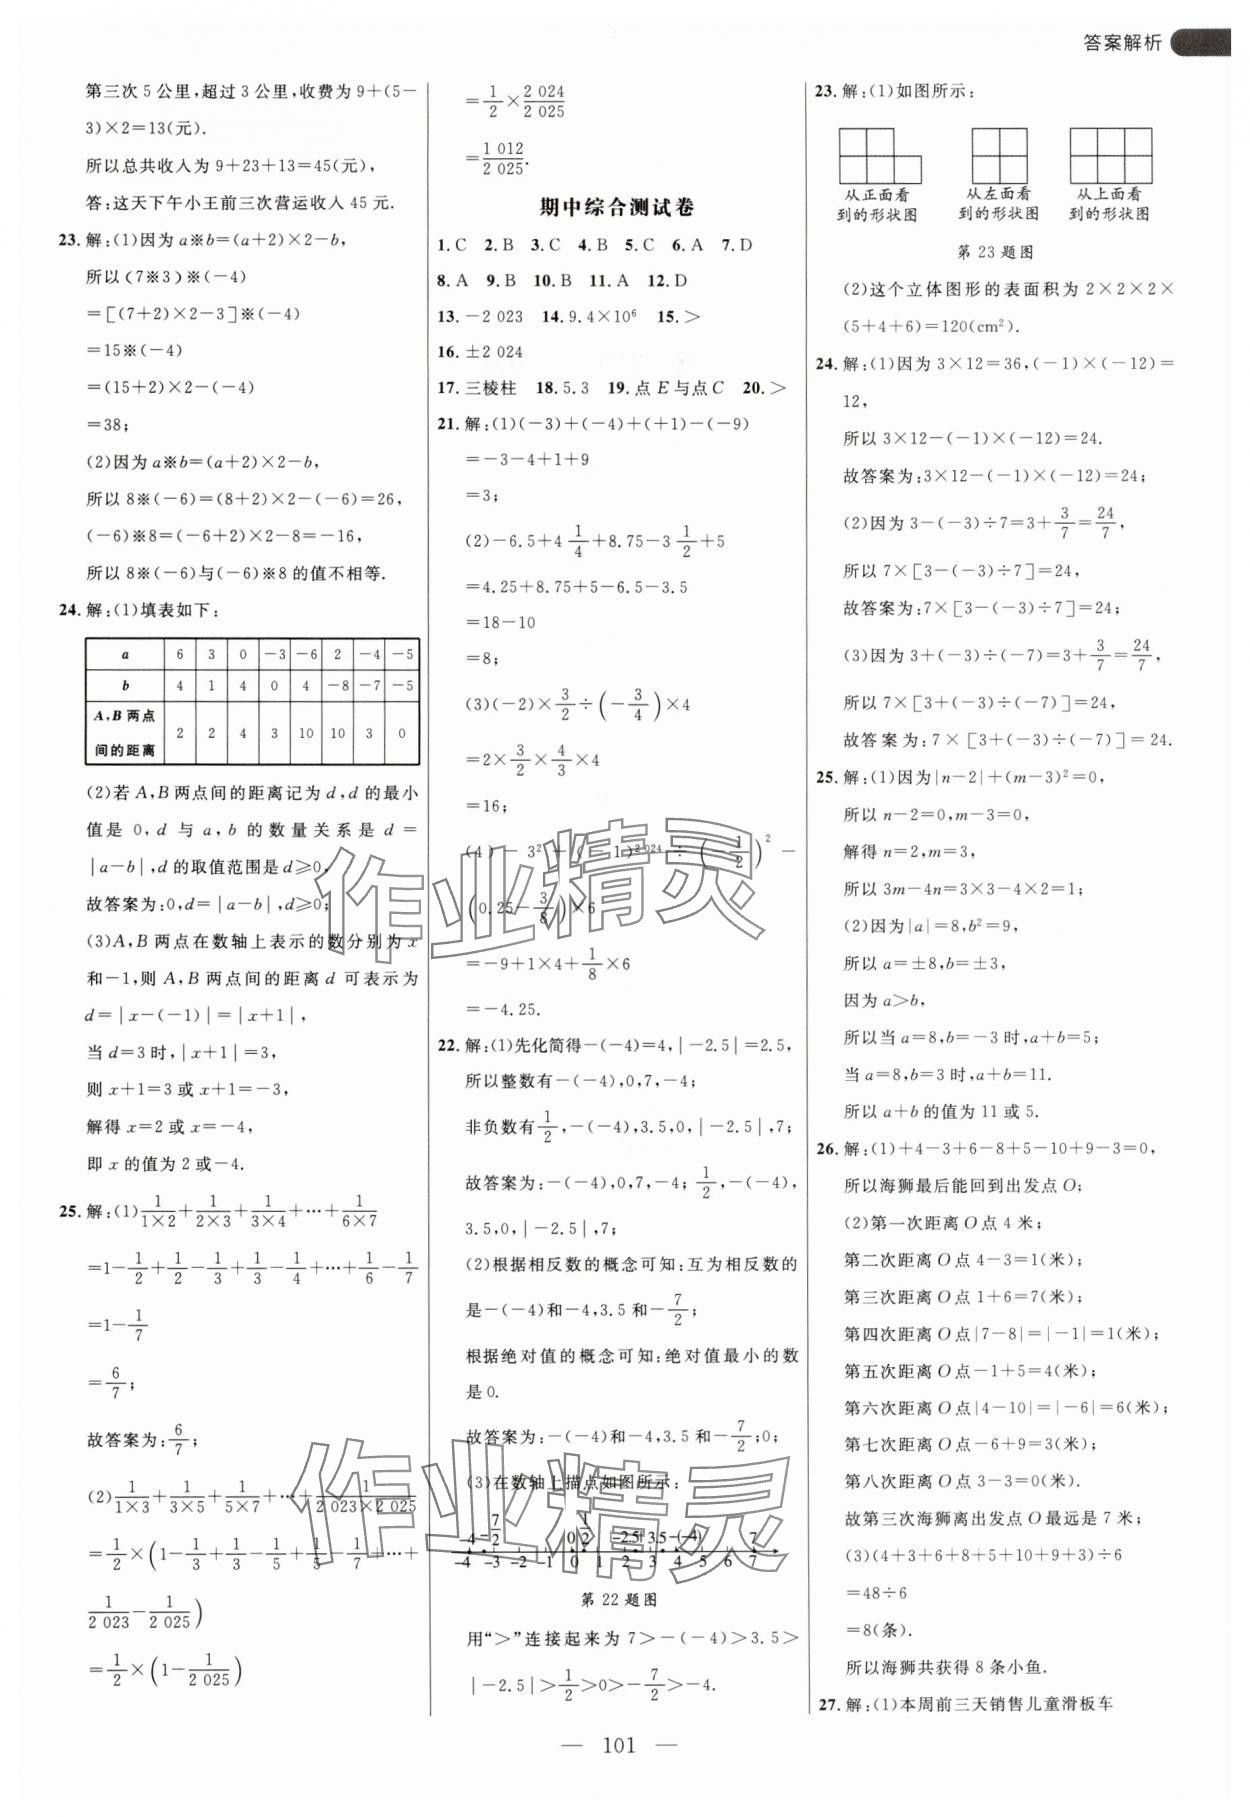 答案解析
第三次5公里,超过3公里,收费为9+(5-
3)×2=13(元).
所以总共收入为9+23+13=45(元),
答:这天下午小王前三次营运收入45元.
23.解:(1)因为a※b=(a+2)×2-b,
所以(7※3)※(-4)
=[(7+2)×2-3]※(-4)
=15※(-4)
=(15+2)×2-(-4)
=38;
(2)因为a※b=(a+2)×2-b,
所以8※(-6)=(8+2)×2-(-6)=26,
(-6)※8=(-6+2)×2-8=-16,
所以8※(-6)与(-6)※8的值不相等.
24.解:(1)填表如下:
a 6 3 0 -3 -6 2 -4 -5
b 4 1 4 0 4 -8 -7 -5
A,B两点间的距离 2 2 4 3 10 10 3 0
(2)若A,B两点间的距离记为d,d的最小
值是0,d与a,b的数量关系是d=
|a-b|,d的取值范围是d≥0,
故答案为:0,d=|a-b|,d≥0;
(3)A,B两点在数轴上表示的数分别为x
和-1,则A,B两点间的距离d可表示为
d=|x-(-1)|=|x+1|,
当d=3时,|x+1|=3,
则x+1=3或x+1=-3,
解得x=2或x=-4,
即x的值为2或-4.
25.解:(1)1/1×2+1/2×3+1/3×4+…+1/6×7
=1-1/2+1/2-1/3+1/3-1/4+…+1/6-1/7
=1-1/7
=6/7;
故答案为:6/7;
(2)1/1×3+1/3×5+1/5×7+…+1/2 023×2 025
=1/2×(1-1/3+1/3-1/5+1/5-1/7+…+
1/2 023-1/2 025)
=1/2×(1-1/2 025)
=1/2×2 024/2 025
=1 012/2 025.
期中综合测试卷
1.C 2.B 3.C 4.B 5.C 6.A 7.D
8.A 9.B 10.B 11.A 12.D
13.-2 023 14.9.4×10⁶ 15.>
16.±2 024
17.三棱柱 18.5.3 19.点E与点C 20.>
21.解:(1)(-3)+(-4)+(+1)-(-9)
=-3-4+1+9
=3;
(2)-6.5+4 1/4+8.75-3 1/2+5
=4.25+8.75+5-6.5-3.5
=18-10
=8;
(3)(-2)×3/2÷(-3/4)×4
=2×3/2×4/3×4
=16;
(4)-3²+(-1)²⁰²⁴÷(-1/2)²-
(0.25-3/8)×6
=-9+1×4+1/8×6
=-4.25.
22.解:(1)先化简得-(-4)=4,|-2.5|=2.5,
所以整数有-(-4),0,7,-4;
非负数有1/2,-(-4),3.5,0,|-2.5|,7;
故答案为:-(-4),0,7,-4;1/2,-(-4),
3.5,0,|-2.5|,7;
(2)根据相反数的概念可知:互为相反数的
是-(-4)和-4,3.5和-7/2;
根据绝对值的概念可知:绝对值最小的数
是0.
故答案为:-(-4)和-4,3.5和-7/2;0;
(3)在数轴上描点如图所示:
-4 -7/2 0 1/2 |-2.5| 3.5 -(-4) 7
-4 -3 -2 -1 0 1 2 3 4 5 6 7
第22题图
用“>”连接起来为7>-(-4)>3.5>
|-2.5|>1/2>0>-7/2>-4.
23.解:(1)如图所示:
从正面看 从左面看 从上面看
到的形状图 到的形状图 到的形状图
第23题图
(2)这个立体图形的表面积为2×2×2×
(5+4+6)=120(cm²).
24.解:(1)因为3×12=36,(-1)×(-12)=
12,
所以3×12-(-1)×(-12)=24.
故答案为:3×12-(-1)×(-12)=24;
(2)因为3-(-3)÷7=3+3/7=24/7,
所以7×[3-(-3)÷7]=24,
故答案为:7×[3-(-3)÷7]=24;
(3)因为3+(-3)÷(-7)=3+3/7=24/7,
所以7×[3+(-3)÷(-7)]=24,
故答案为:7×[3+(-3)÷(-7)]=24.
25.解:(1)因为|n-2|+(m-3)²=0,
所以n-2=0,m-3=0,
解得n=2,m=3,
所以3m-4n=3×3-4×2=1;
(2)因为|a|=8,b²=9,
所以a=±8,b=±3,
因为a>b,
所以当a=8,b=-3时,a+b=5;
当a=8,b=3时,a+b=11.
所以a+b的值为11或5.
26.解:(1)+4-3+6-8+5-10+9-3=0,
所以海狮最后能回到出发点O;
(2)第一次距离O点4米;
第二次距离O点4-3=1(米);
第三次距离O点1+6=7(米);
第四次距离O点|7-8|=|-1|=1(米);
第五次距离O点-1+5=4(米);
第六次距离O点|4-10|=|-6|=6(米);
第七次距离O点-6+9=3(米);
第八次距离O点3-3=0(米).
故第三次海狮离出发点O最远是7米;
(3)(4+3+6+8+5+10+9+3)÷6
=48÷6
=8(条).
所以海狮共获得8条小鱼.
27.解:(1)本周前三天销售儿童滑板车
— 101 —
作业精灵
作业精灵